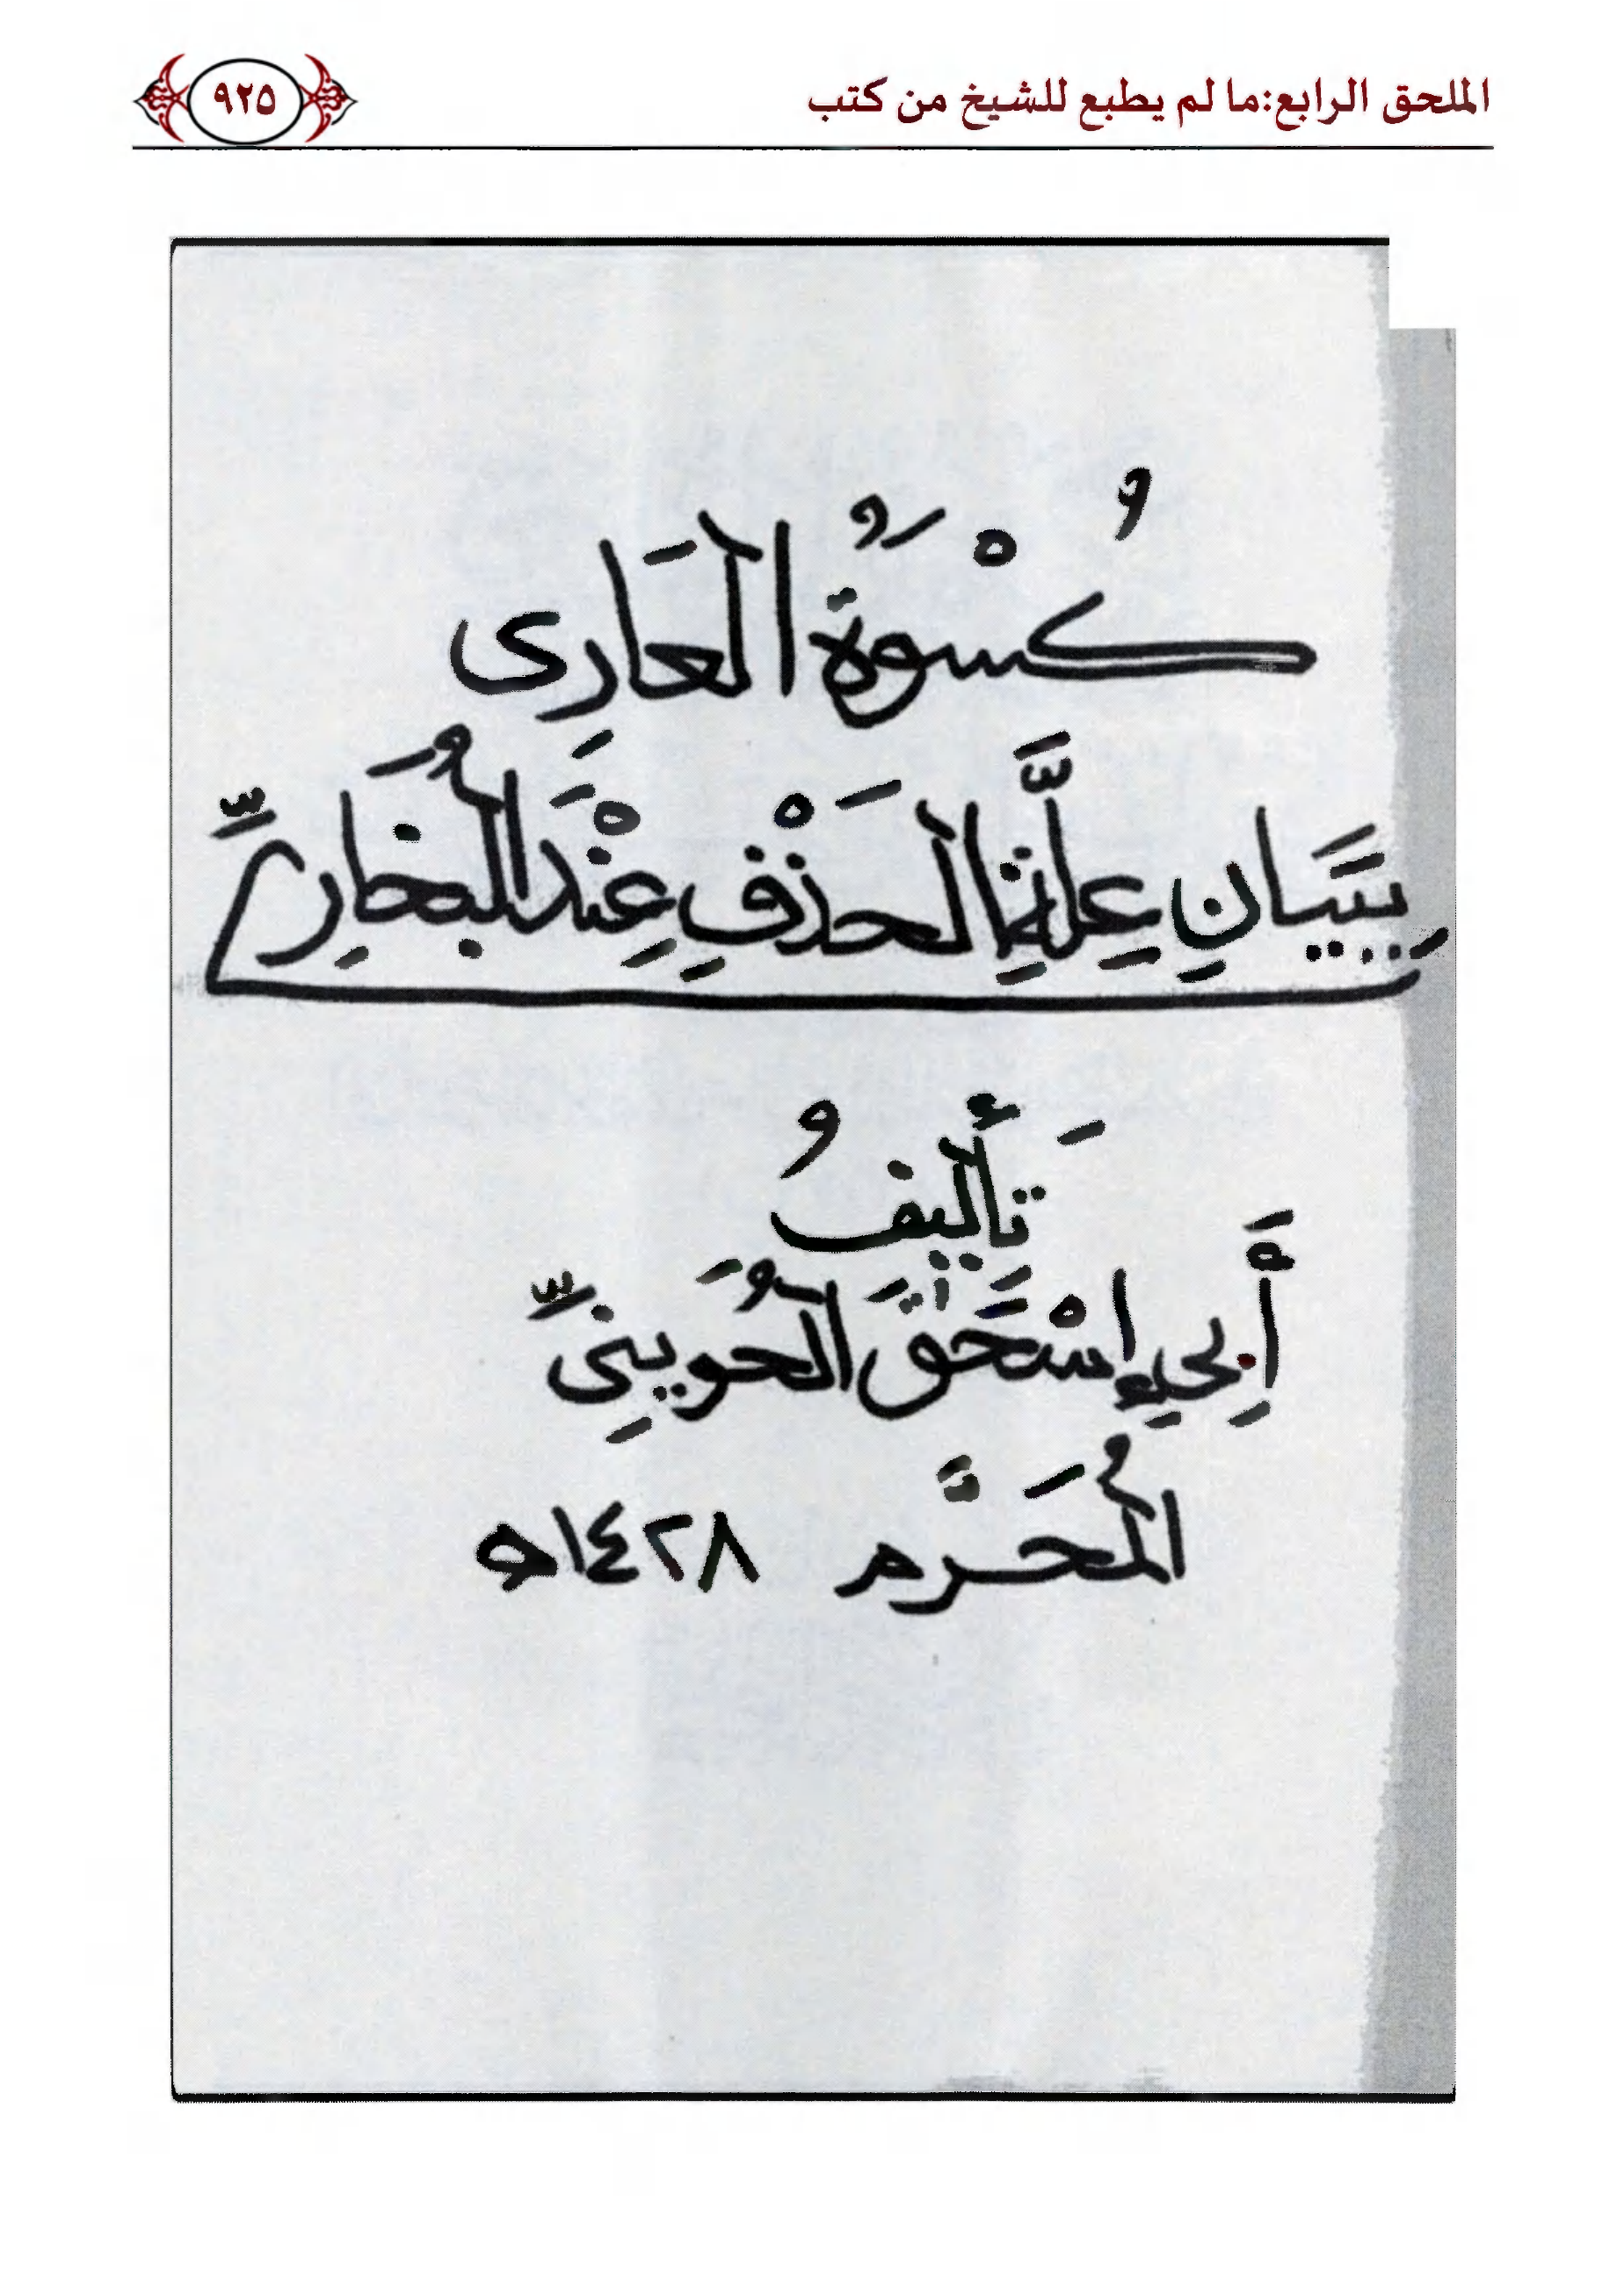 الملحق الرابع:ما لم يطبع للشيخ من كتب
٩٢٥
كُسْوَةُ العَارِى
بِبَيَانِ عِلَّةِ الحَذْفِ عِنْدَ البُخَارِىِّ
تَأليفُ
أَبِي إسْحَقَ الحُوَينِىِّ
المُحَرَّم ١٤٢٨ه